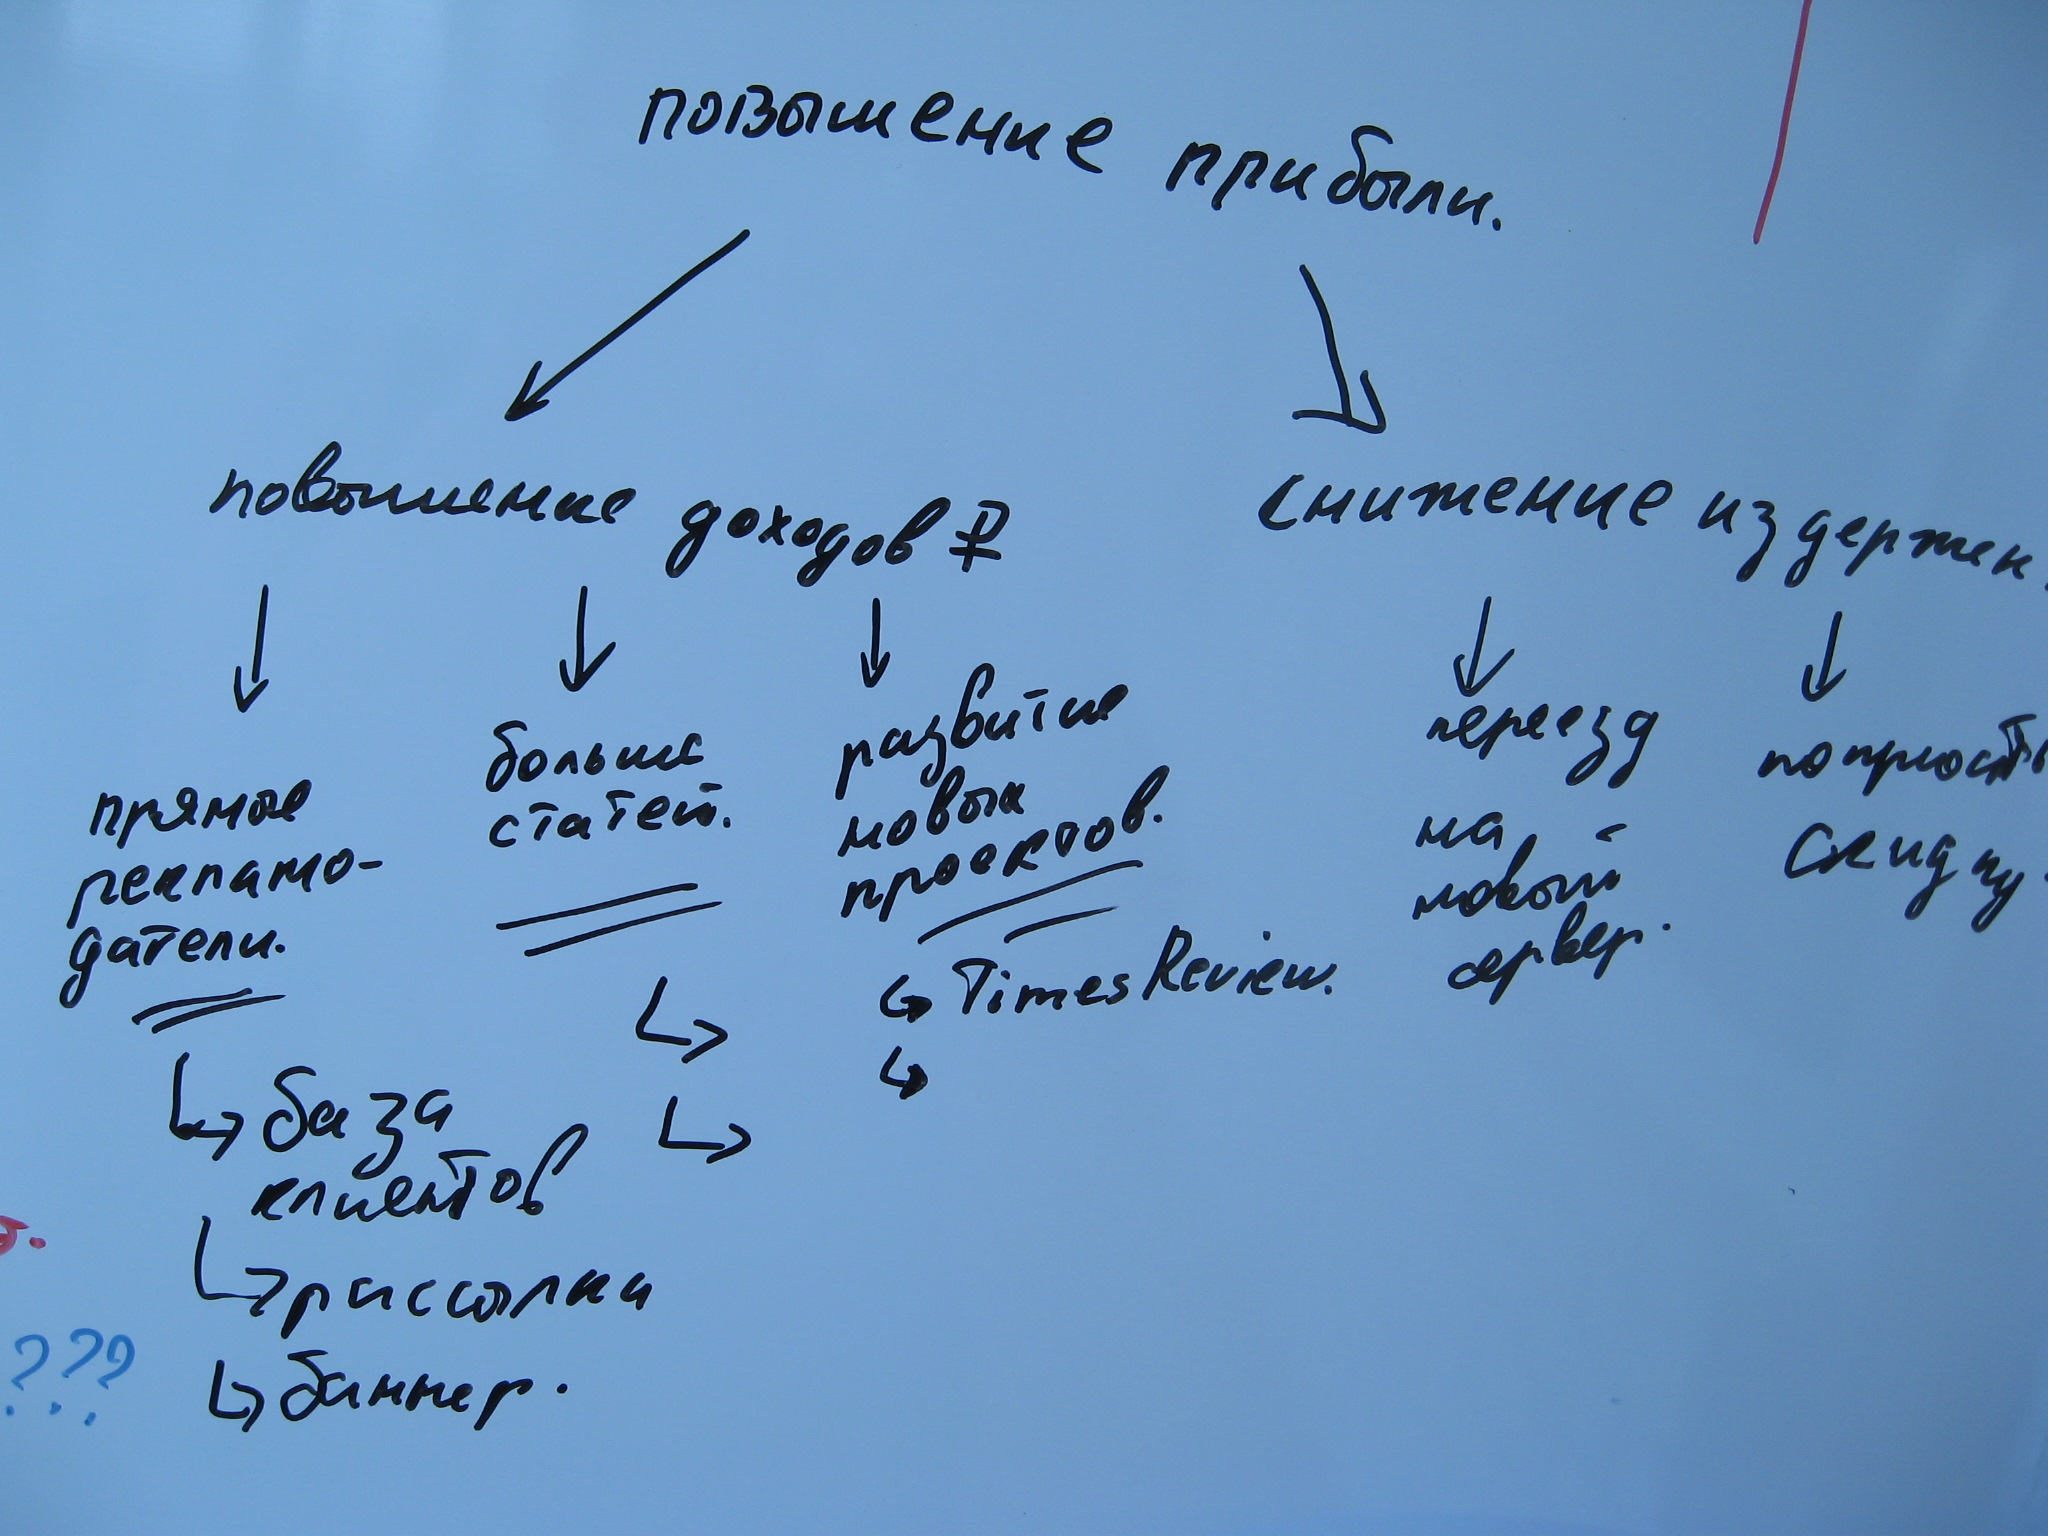 повышение прибыли.
повышение доходов ₽
снижение издержек.
прямые
рекламо-
датели.
больше
статей.
развитие
новых
проектов.
переезд
на
новый
сервер.
попросить
скидку.
↳ TimesReview.
↳
↳
↳
↳ база
клиентов
↳ рассылки
↳ баннер.
???
...